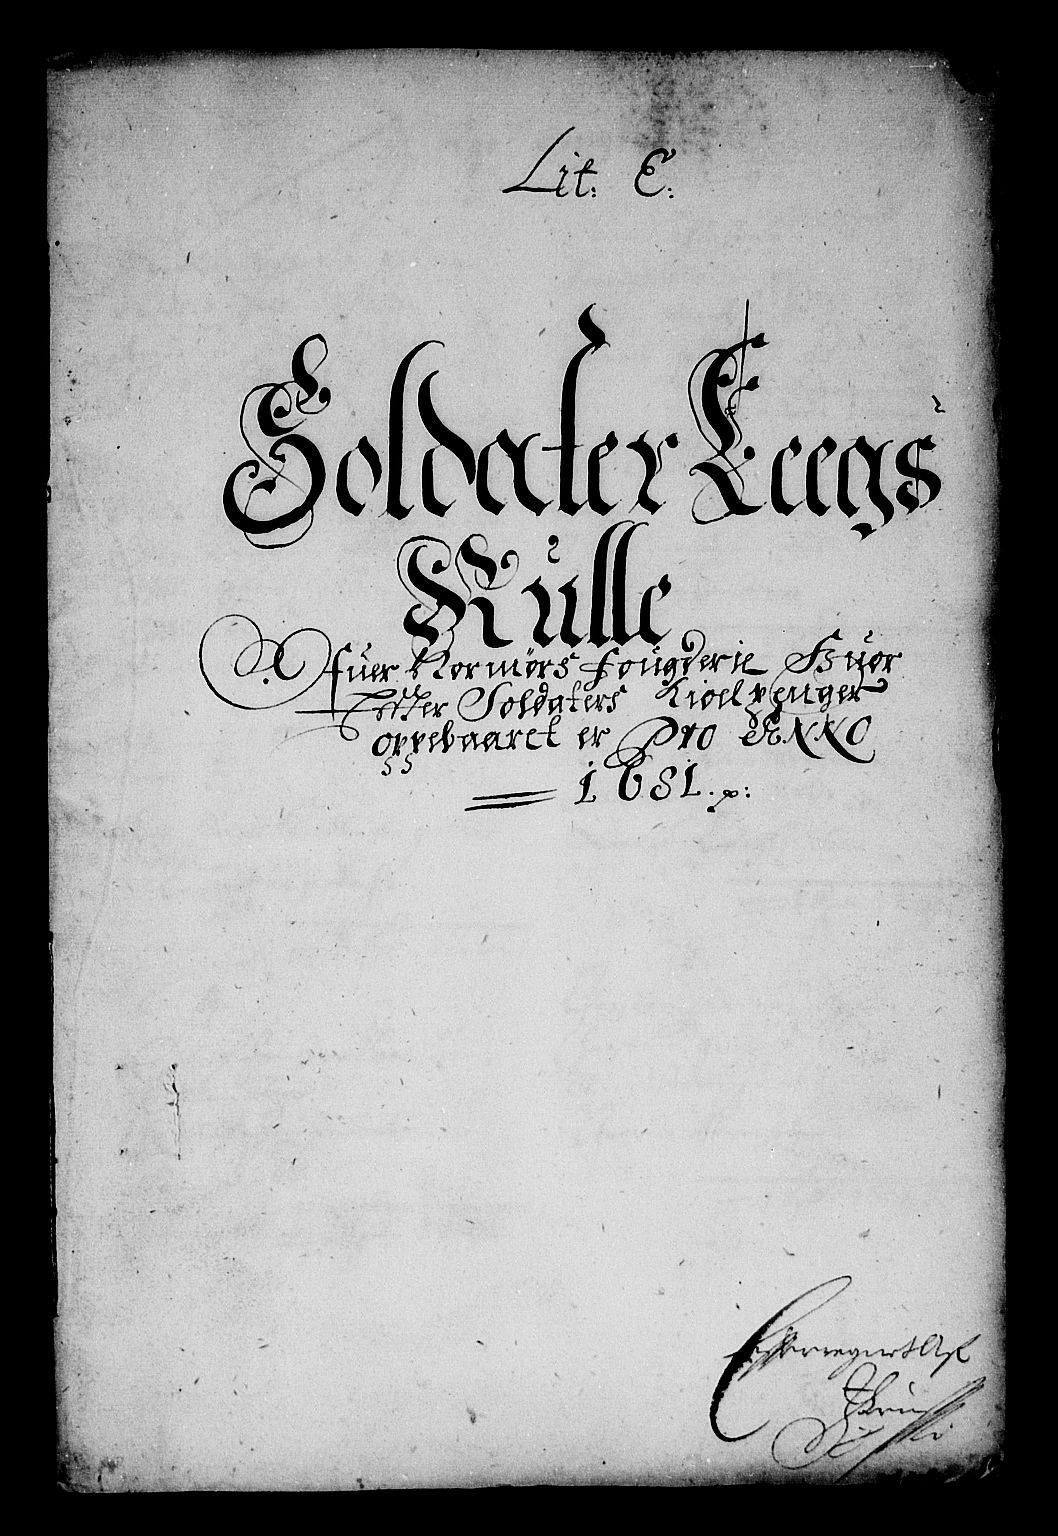 Lit: E:
Soldater Leegs
Rulle
Afuer Normørs fougderie Huor
Efter Soldaters Kioelpenger
oppebaaret er Pro ANNO
1681.
Efterregnet Af